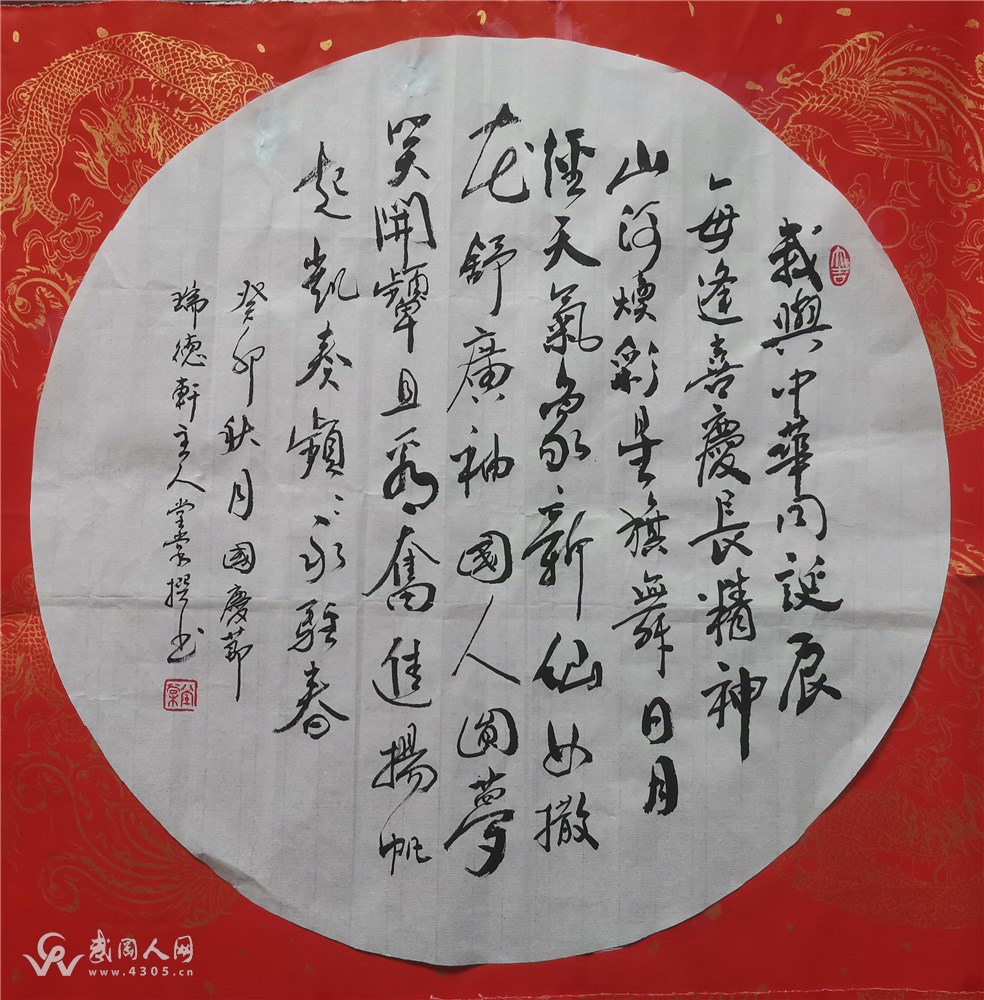 我與中華同誕辰
每逢喜慶長精神
山河煥彩星旗舞日月
經天氣象新仙女撒
花舒廣袖國人圓夢
笑開顰且看奮進揚帆
起凱奏頻〻永駐春
癸卯秋月國慶節
瑞德軒主人堂棠撰书
大吉
武冈人网
www.4305.cn